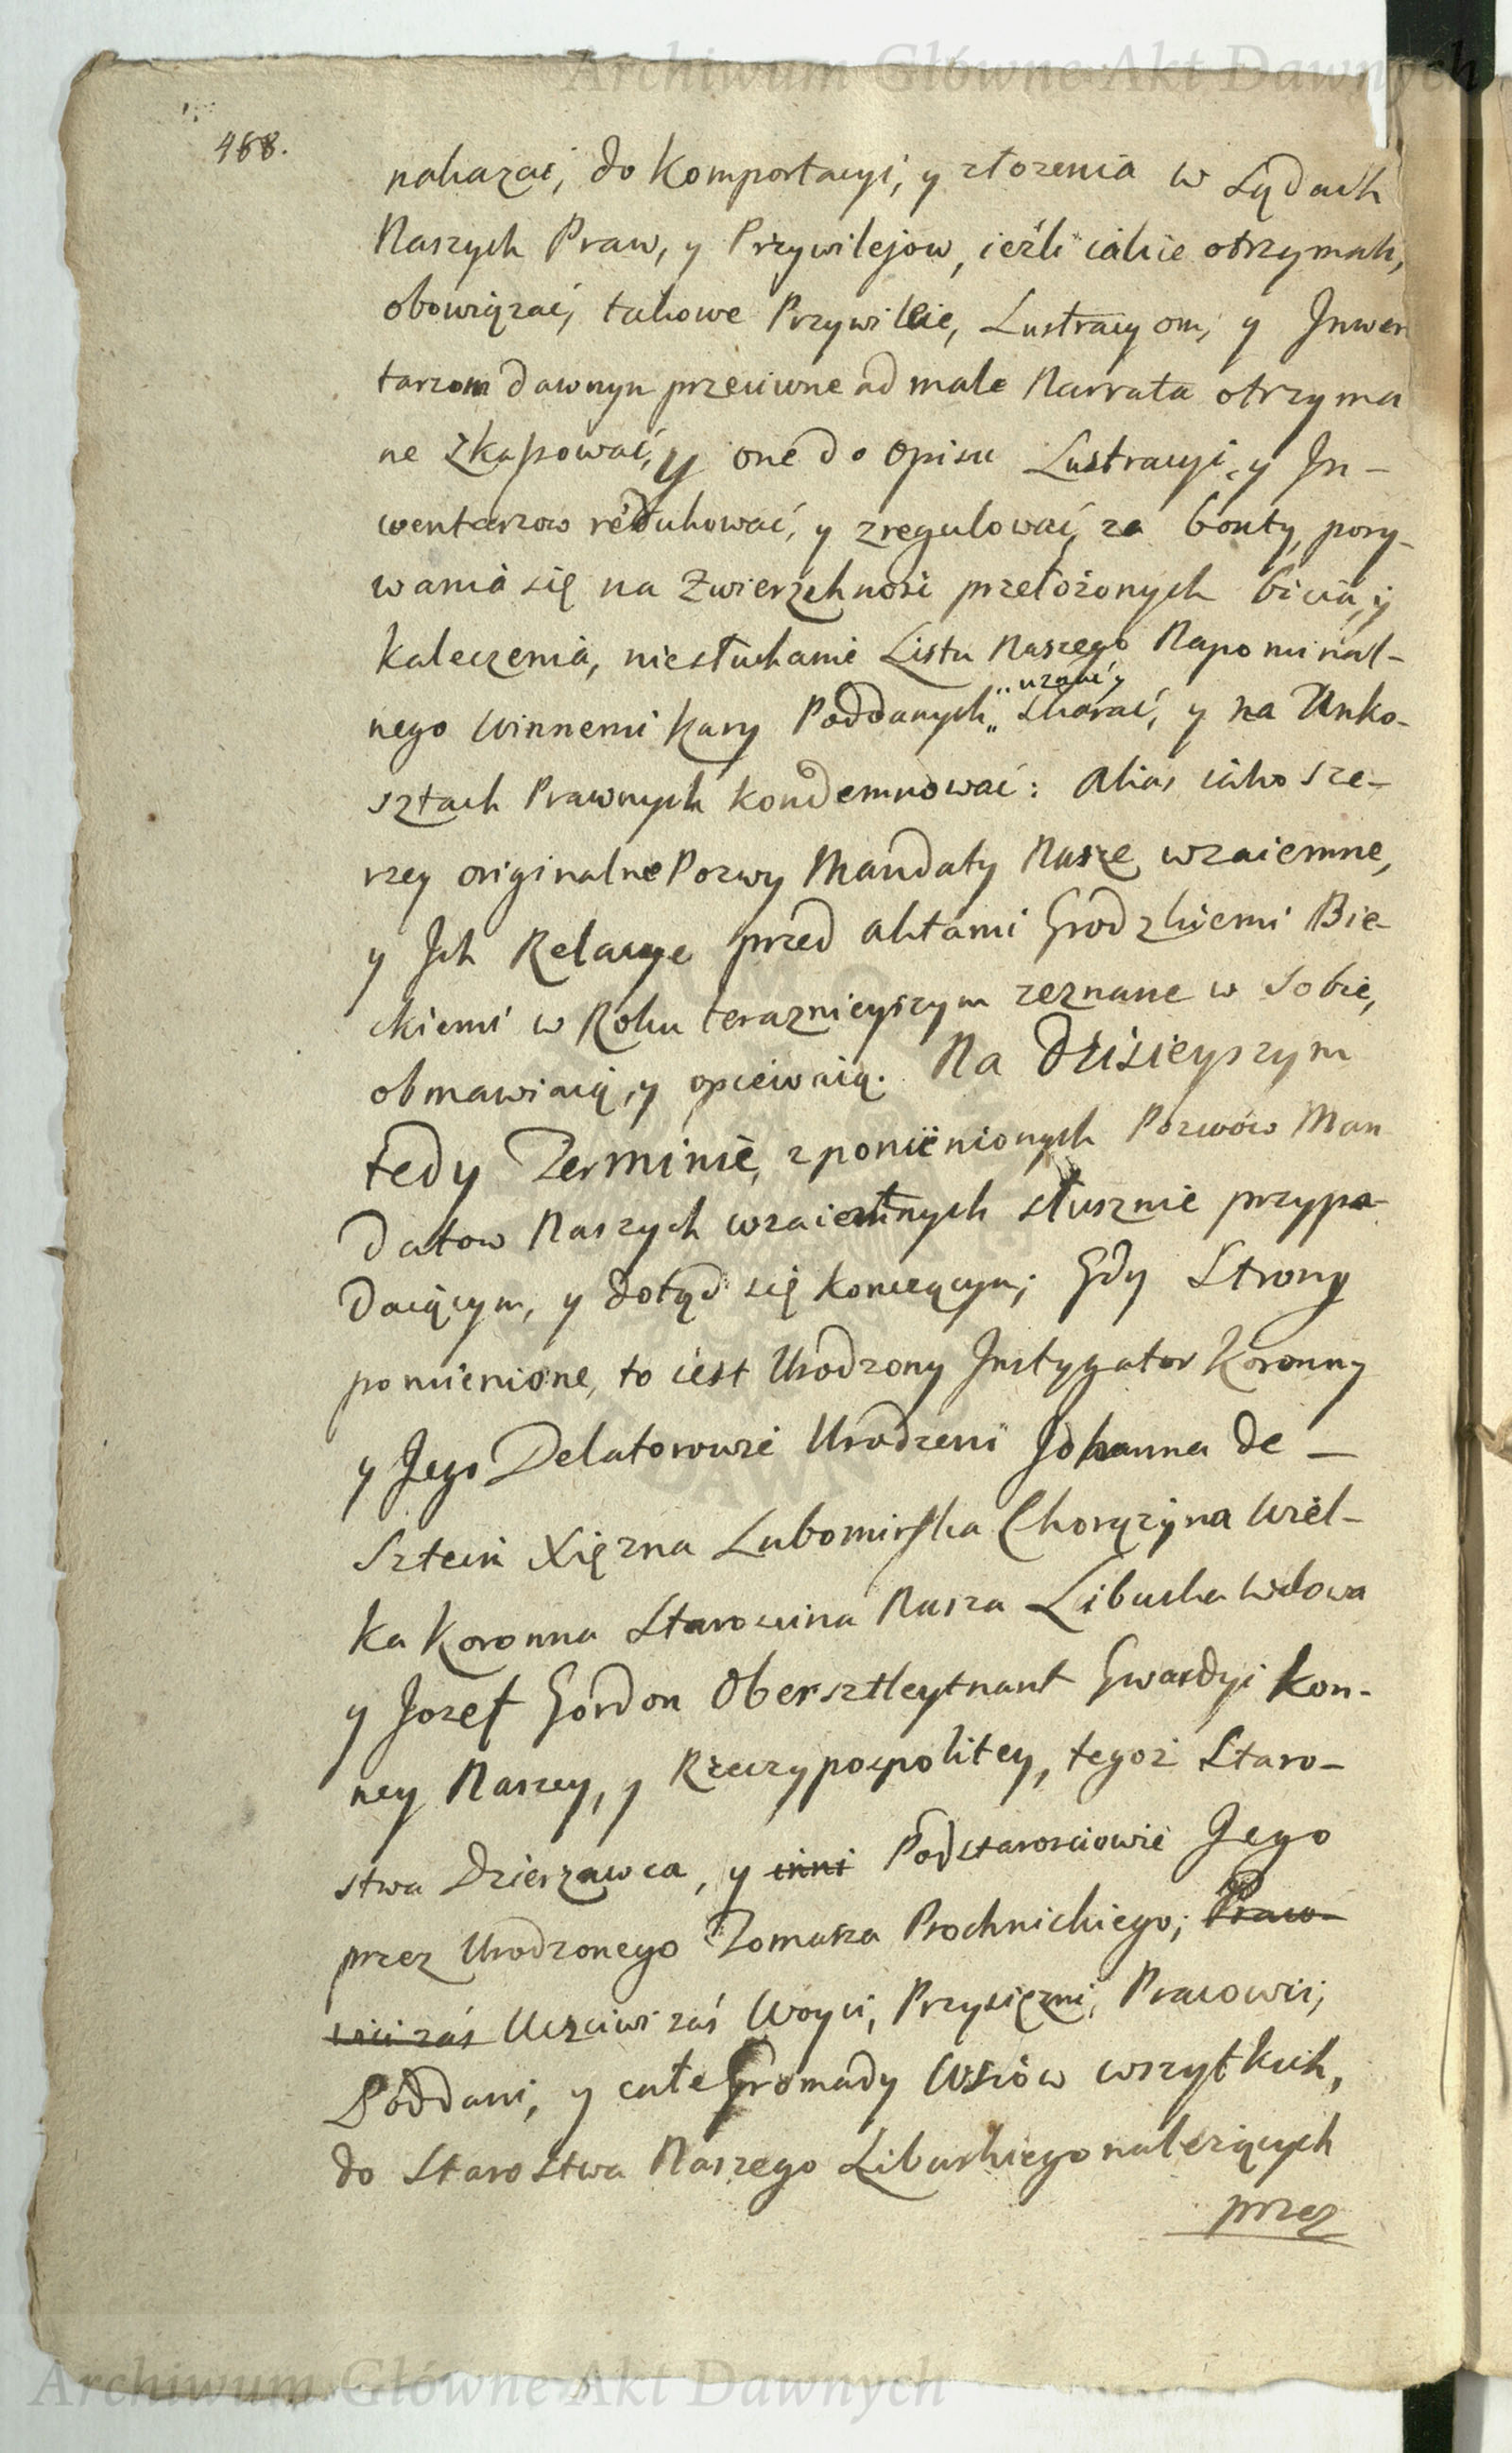 Archiwum Główne Akt Dawnych
468.
nakazać, do Komportacyi, y złożenia w Sądach
Naszych Praw, y Przywilejow, ieźli iakie otrzymali,
obowiązać, takowe Przywileie, Lustracyom, y Inwen
tarzom dawnym przeciwne ad male Narrata otrzyma
ne zkassować, y one do Opisu Lustracyi, y In-
wentarzow redukować, y zregulować, za bonty, pory-
wania się na Zwierzchność przełożonych bicia, y
kaleczenia, niesłuchanie Listu Naszego Napominal-
nego winnemi kary Poddanych „uznać y
„ skarać, y na Unko-
sztach Prawnych kondemnować: Alias iako sze-
rzey originalne Pozwy Mandaty Nasze wzaiemne,
y Ich Relacye przed aktami Grodzkiemi Bie-
ckiemi w Roku teraznieyszym zeznane w sobie,
obmawiaią, y opiewaią. Na Dzisieyszym
tedy Terminie, z pomienionych Pozwów Man
datow Naszych wzaiemnych słusznie przypa-
daiącym, y dotąd się koncącym; Gdy Strony
pomienione, to iest Urodzony Instygator Koronny
y Jego Delatorowie Urodzeni Johanna de -
Sztein Xiężna Lubomirska Chorązyna Wiel-
ka Koronna Starościna Nasza Libuska Wdowa
y Jozef Gordon Obersztleytnant Gwardyi Kon-
ney Naszey, y Rzeczypospolitey, tegoż Staro-
stwa Dzierzawca, y inni Podstarosciowie Jego
przez Urodzonego Tomasza Prochnickiego; Praco-
wici zaś Uczciwi zaś Woyci, Przysięzni, Pracowici,
Poddani, y całe Gromady Wsiów wszytkich,
do Starostwa Naszego Libuskiego należących
przez
Archiwum Główne Akt Dawnych